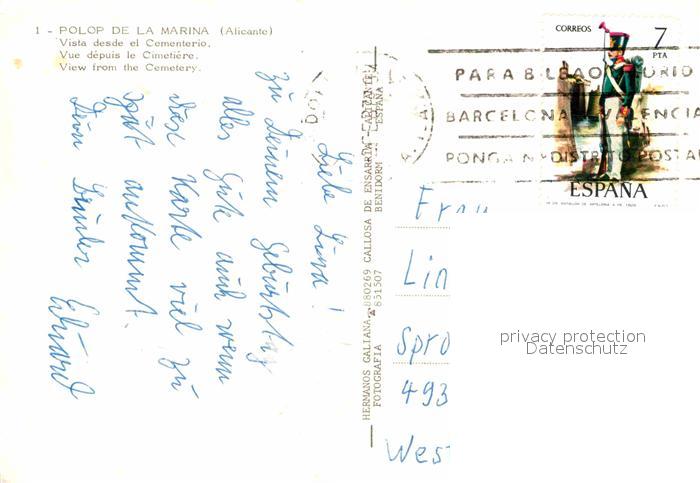 1 - POLOP DE LA MARINA (Alicante)
Vista desde el Cementerio.
Vue dépuis le Cimetière.
View from the Cemetery.
Liebe Lina!
Zu Deinem Geburtstag
alles Gute auch wenn
diese Karte viel zu
spät ankommt.
Dein Bruder Eduard
HERMANOS GALIANA - 880269 CALLOSA DE ENSARRIA - ALICANTE
FOTOGRAFIA 851507 BENIDORM ESPAÑA
CORREOS 7
PTA
ESPAÑA
PARA BILBAO MADRID
BARCELONA VALENCIA
PONGA Nº DISTRITO POSTAL
Frau
Lin
Spro
493
Wes
privacy protection
Datenschutz